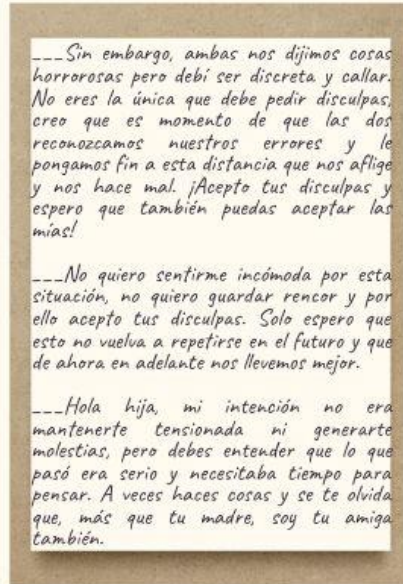 ___Sin embargo, ambas nos dijimos cosas
horrorosas pero debí ser discreta y callar.
No eres la única que debe pedir disculpas,
creo que es momento de que las dos
reconozcamos nuestros errores y le
pongamos fin a esta distancia que nos aflige
y nos hace mal. ¡Acepto tus disculpas y
espero que también puedas aceptar las
mías!

___No quiero sentirme incómoda por esta
situación, no quiero guardar rencor y por
ello acepto tus disculpas. Solo espero que
esto no vuelva a repetirse en el futuro y que
de ahora en adelante nos llevemos mejor.

___Hola hija, mi intención no era
mantenerte tensionada ni generarte
molestias, pero debes entender que lo que
pasó era serio y necesitaba tiempo para
pensar. A veces haces cosas y se te olvida
que, más que tu madre, soy tu amiga
también.